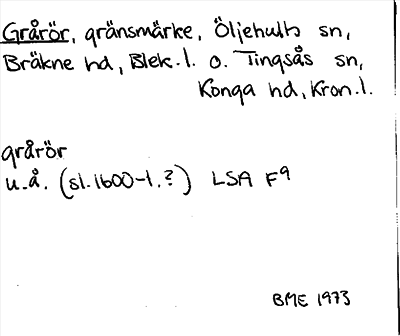 Grårör, gränsmärke, Öljehults sn,
Bräkne hd, Blek.l. o. Tingsås sn,
Konga hd, Kron.l.
grårör
u.å. (sl.1600-t.?) LSA F9
BME 1973